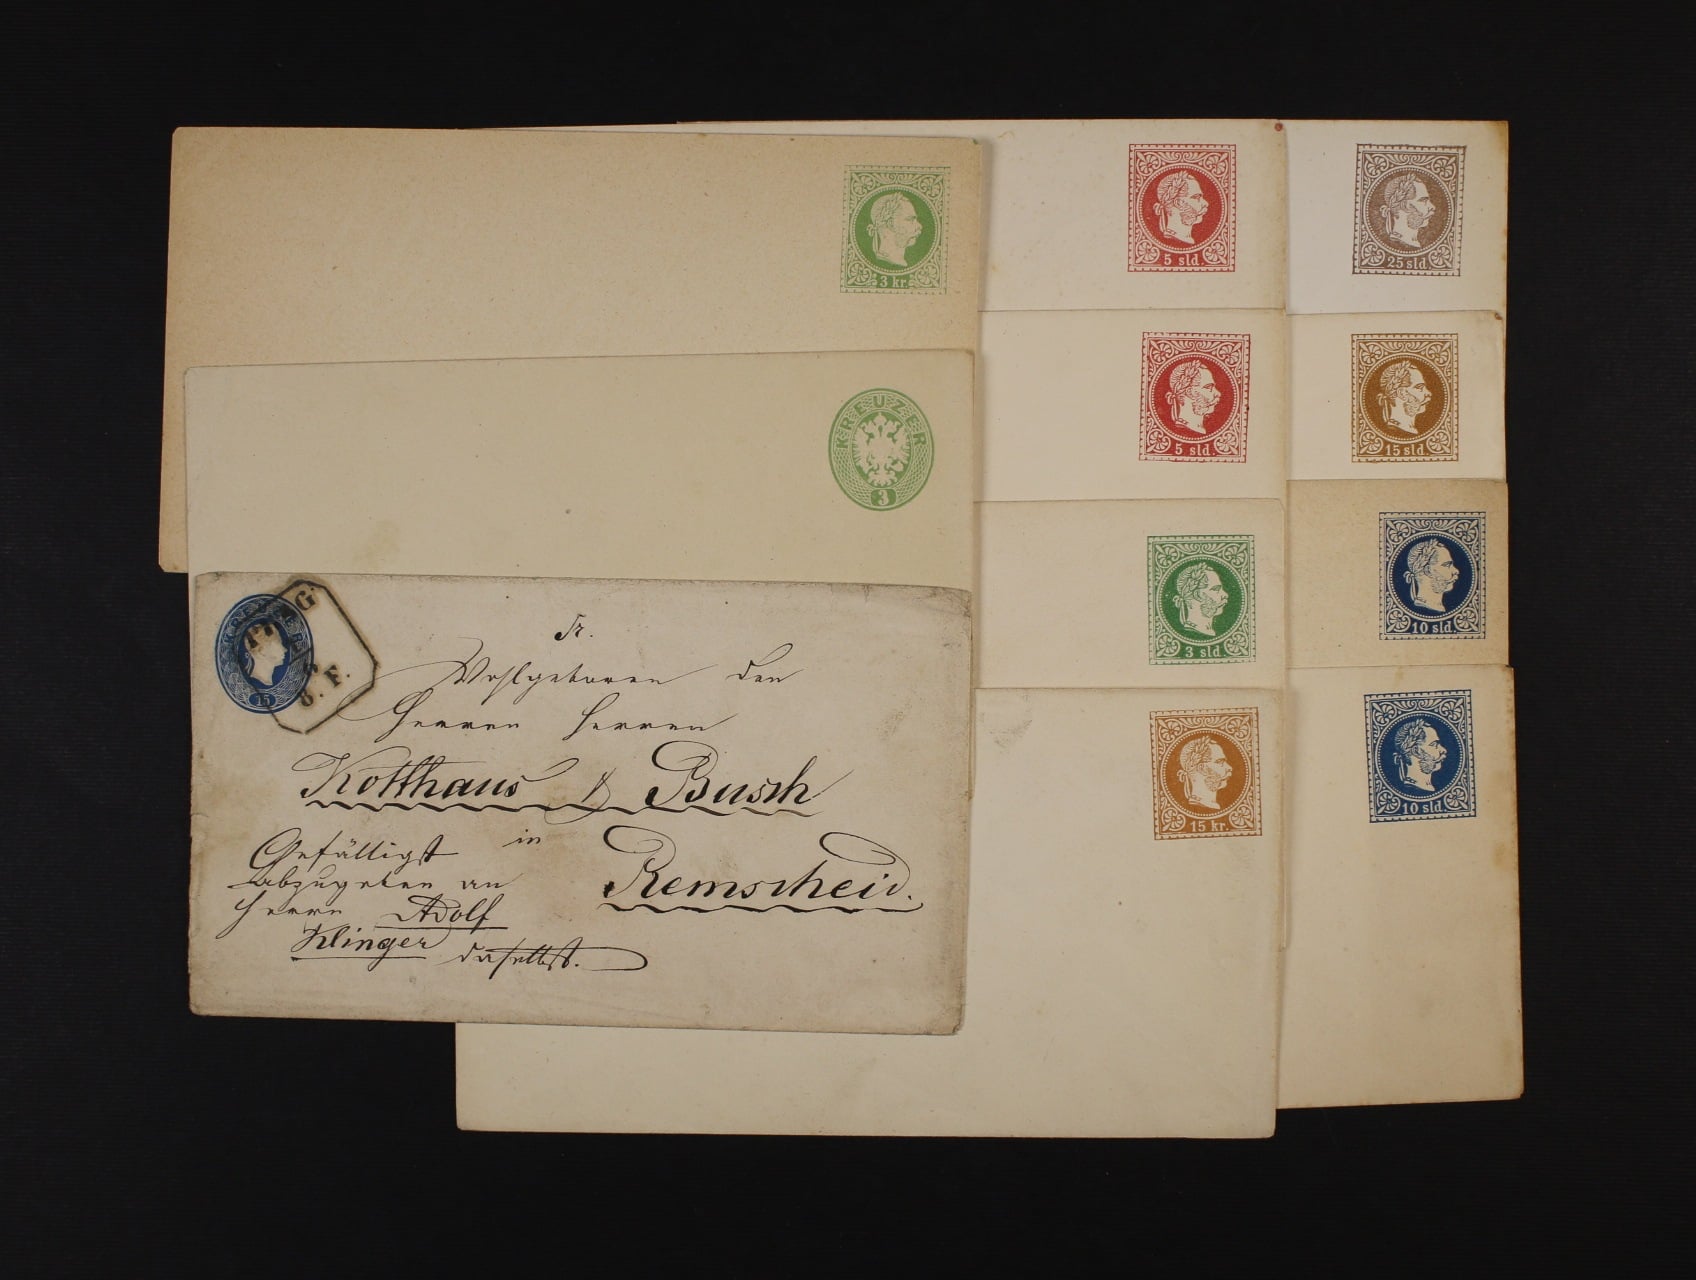 3 kr.
5 sld.
25 sld.
5 sld.
15 sld.
KREUZER
3
3 sld.
10 sld.
15 kr.
10 sld.
15
8. F.
Sr.
Wohlgeboren den
Herren Herren
Kotthaus & Busch
in
Remscheid.
Gefälligst
abzugeben an
Herrn Adolf
Klinger daselbst.